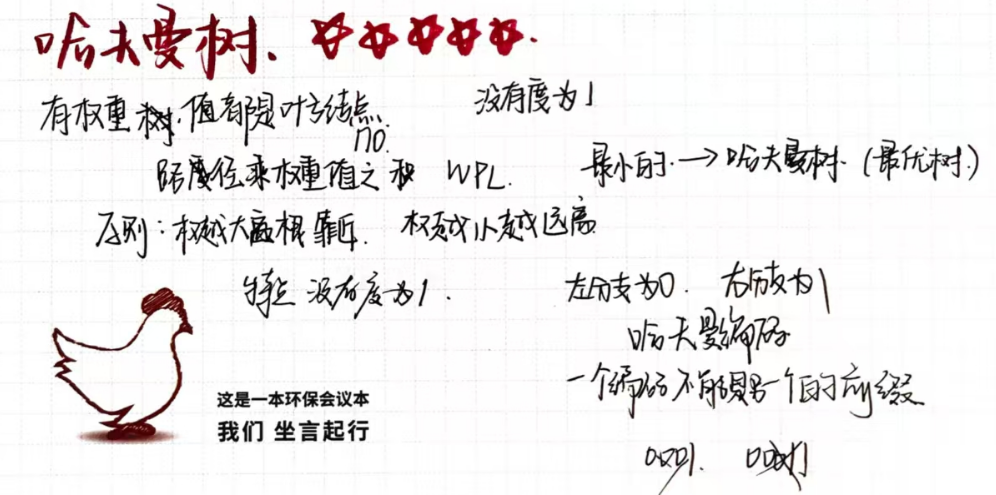 哈夫曼树.
有权重树.值都是叶子结点 没有度为1
n0.
路径乘权重值之和 WPL. 最小的.→哈夫曼树.(最优树.)
原则:权越大离根靠近. 权越小越远离
特点 没有度为1. 左分支为0. 右分支为1
哈夫曼编码
一个编码不能是另一个的前缀
这是一本环保会议本
我们 坐言起行